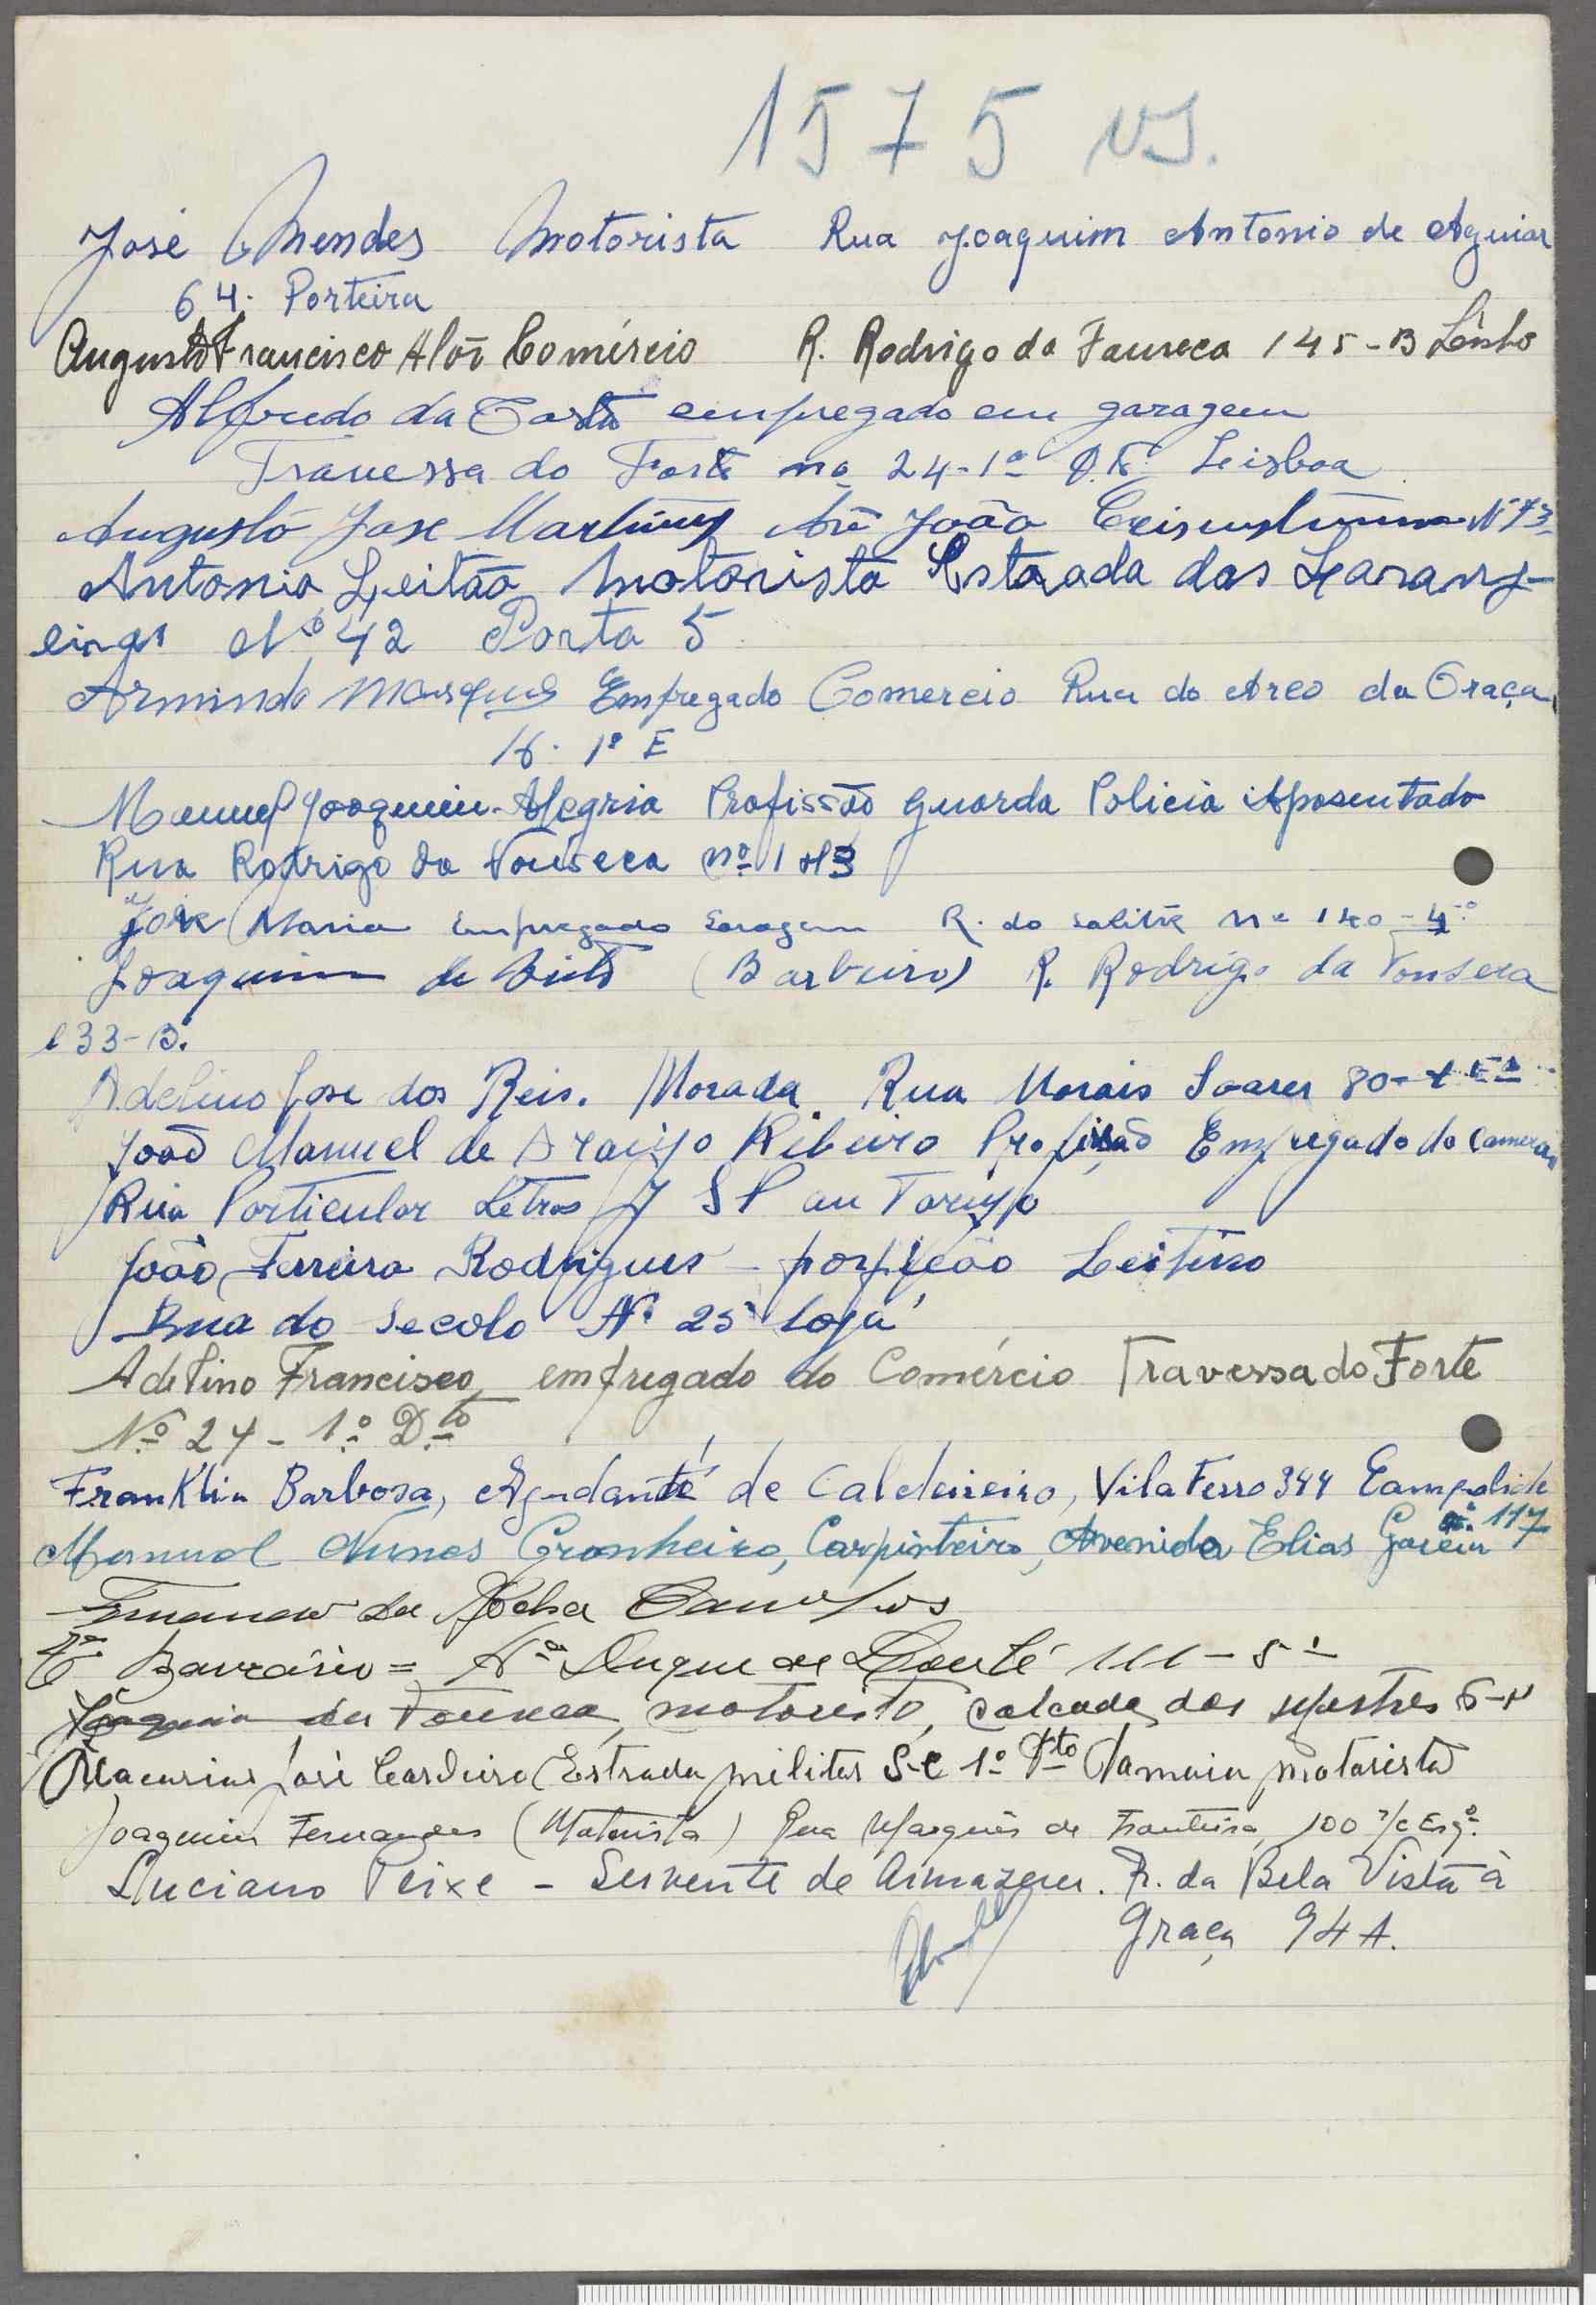 1575 vs.
José Mendes Motorista Rua Joaquim Antonio de Aguiar
64. Porteira
Augusto Francisco Comércio R. Rodrigo da Fonseca 145-B
Alfredo da Costa empregado em garagem
Travessa do Forte no 24-1º Leisboa
Augusto Jose Martins João Nº 73
Antonio Leitão Motorista Estrada das Laranj-
eiras Nº 42 Porta 5
Armindo Marques Empregado Comercio Rua do Arco da Graça
16. 1º E
Manuel Joaquim Alegria Profissão Guarda Policia Aposentado
Rua Rodrigo da Fonseca nº 143
José Maria Empregado Garagem R. do Salitre nº 140-4º
Joaquim de Brito (Barbeiro) R. Rodrigo da Fonseca
133-B.
Adelino Jose dos Reis. Morada Rua Morais Soares 80-
João Manuel de Araujo Ribeiro Profissão Empregado do Comercio
Rua Particular Letras
João Ferreira Rodrigues Leiteiro
Rua do Seculo Nº 25 loja
Adelino Francisco, empregado do Comércio Travessa do Forte
Nº 24-1º Dto
Franklin Barbosa, Ajudante de Caldeireiro, Vila Ferro 344 Campolide
Manuel Nunes Granheiro, Carpinteiro, Avenida Elias Garcia 117
Fernando da Rocha Campos
Bancário = Duque de Loulé 111-5º
Joaquim da Fonseca, motorista, calcada dos Mestres
José Cardeiro (Estrada militar S-C 1º Dto Damaia motorista
Joaquim Fernandes (Motorista) Rua Marquês de Fronteira, 100 r/c Esqº.
Luciano Peixe - Servente de Armazem. R. da Bela Vista à
Graça 94 A.